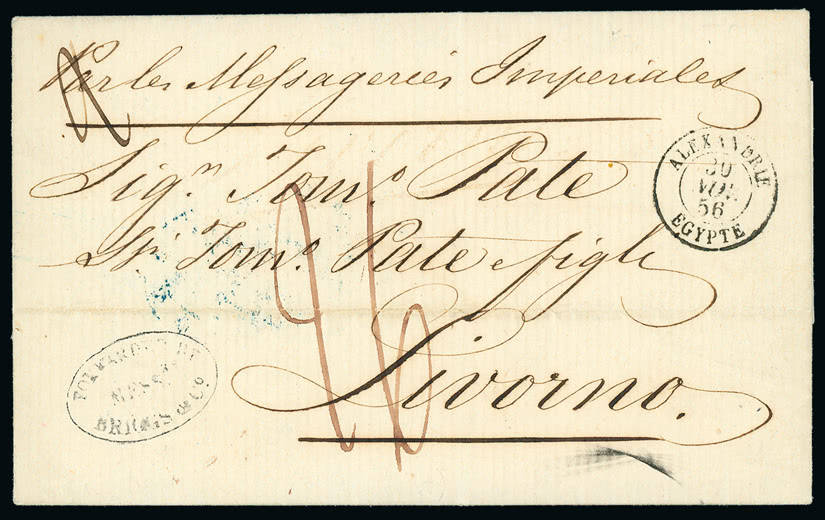 Par les Messageries Imperiales
Sig.n Tom.o Pate
Tom.o Pate figli
Livorno.
ALEXANDRIE
30
NOV.
56
EGYPTE
FORWARDED BY
BRIGGS & Co